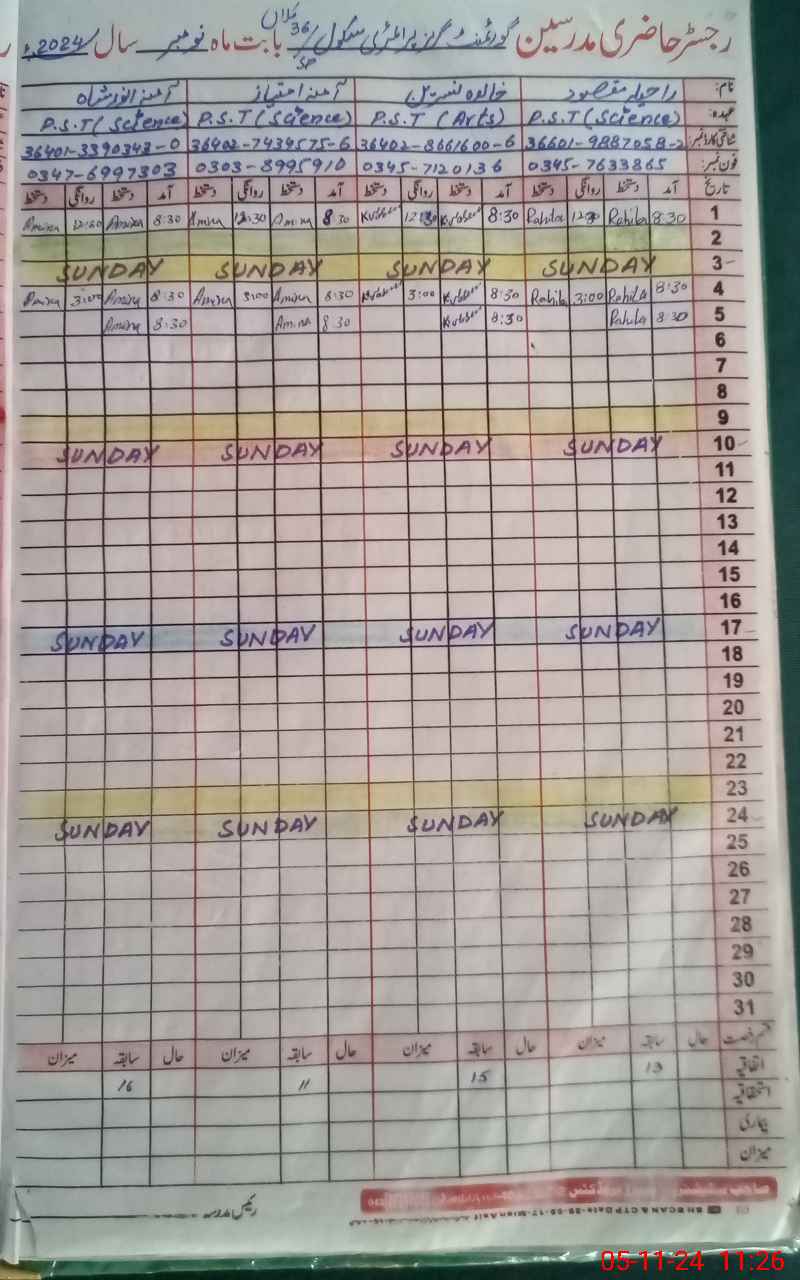 کلاں
رجسٹر حاضری مدرسین گورنمنٹ گرلز پرائمری سکول 36/SP بابت ماہ نومبر سال 2024ء
نام: راحیلہ مقصود خالدہ نسرین آمنہ امتیاز آمنہ انور شاہ
عہدہ: P.S.T (Science) P.S.T (Arts) P.S.T (Science) P.S.T (Science)
شناختی کارڈ نمبر: 36601-9887058-2 36402-8661600-6 36402-7434575-6 36401-3390343-0
فون نمبر: 0345-7633865 0345-7120136 0303-8995910 0347-6997303
تاریخ آمد دستخط روانگی دستخط آمد دستخط روانگی دستخط آمد دستخط روانگی دستخط آمد دستخط روانگی دستخط
1 8:30 Rahila 12:30 Rahila 8:30 12:30 8 30 Amina 12:30 Amina 8:30 Amina 12:30 Amina
2
3 SUNDAY SUNDAY SUNDAY SUNDAY
4 8:30 Rahila 3:00 Rahila 8:30 3:00 8:30 Amina 3:00 Amina 8:30 Amina 3:00 Amina
5 8:30 Rahila 8:30 8 30 Amina 8:30 Amina
6
7
8
9
10 SUNDAY SUNDAY SUNDAY SUNDAY
11
12
13
14
15
16
17 SUNDAY SUNDAY SUNDAY SUNDAY
18
19
20
21
22
23
24 SUNDAY SUNDAY SUNDAY SUNDAY
25
26
27
28
29
30
31
قسم رخصت حال سابقہ میزان حال سابقہ میزان حال سابقہ میزان حال سابقہ میزان
اتفاقیہ 13 15 11 16
استحقاقیہ
بیماری
میزان
رئیس مدرسہ
05-11-24 11:26